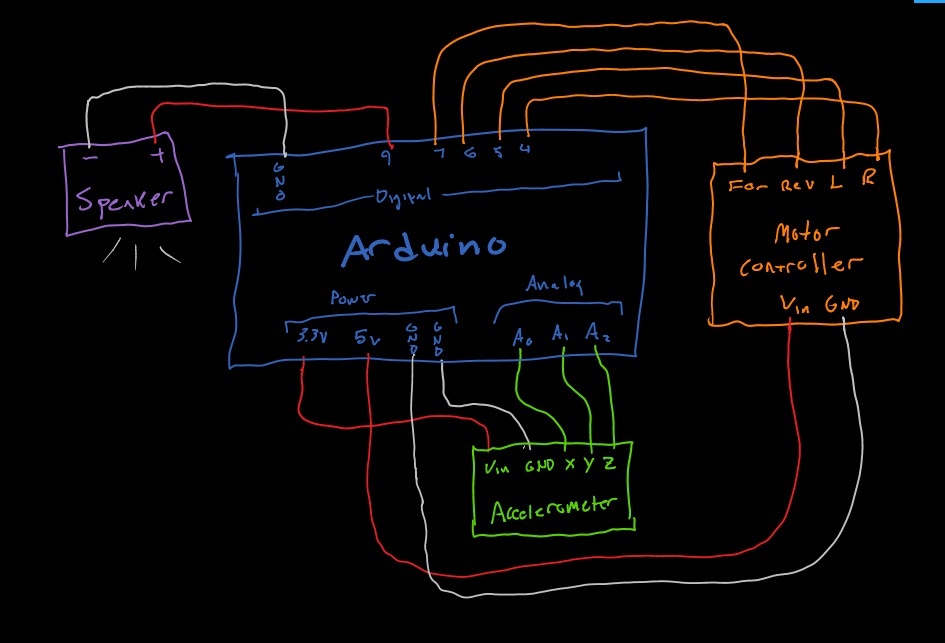 - +
Speaker
GND 9 7 6 5 4
Digital
Arduino
Power
Analog
3.3V 5V GND GND A0 A1 A2
For Rev L R
Motor
Controller
Vin GND
Vin GND X Y Z
Accelerometer